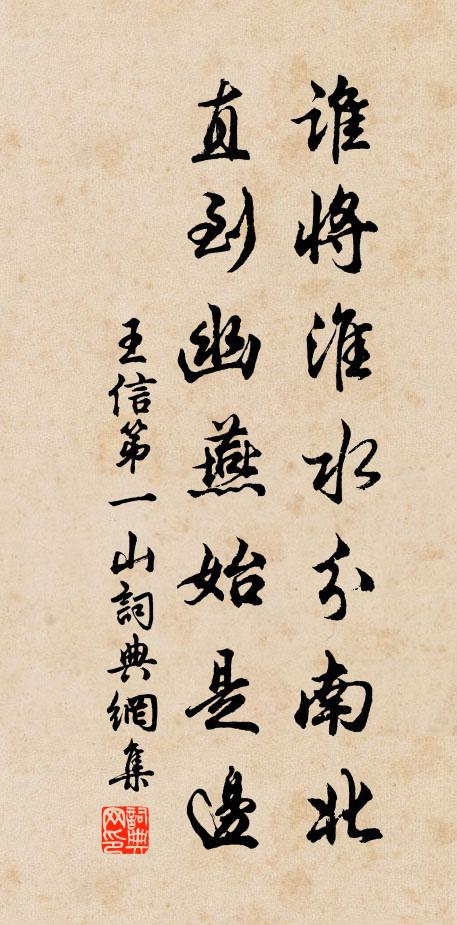 誰將淮水分南北
直到幽燕始是邊
王信第一山詞典網集
詞典網印